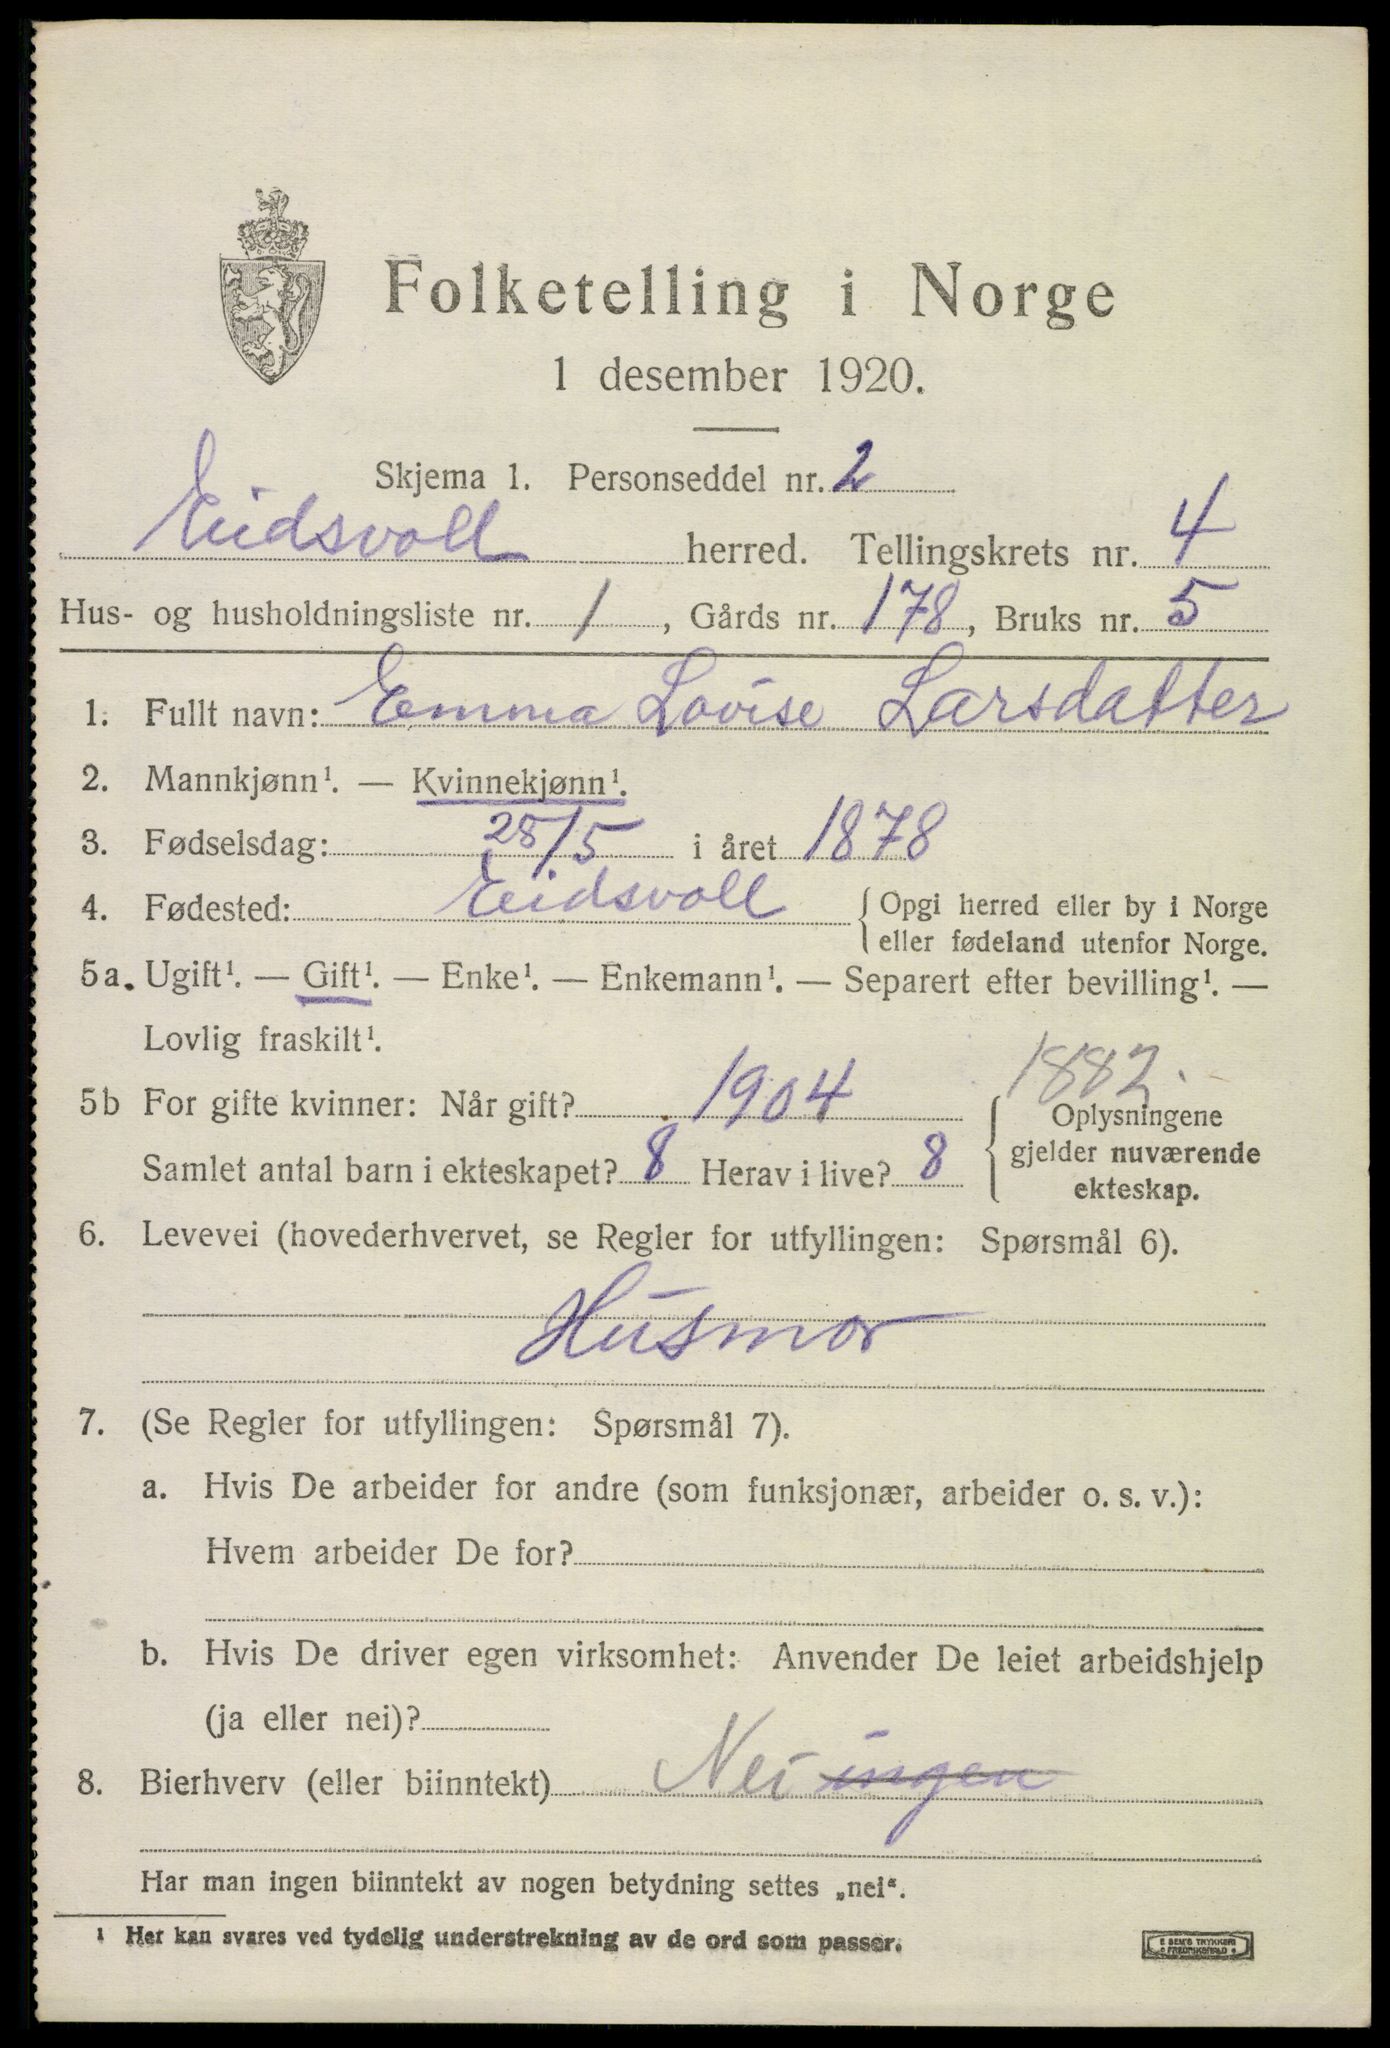 Folketelling i Norge
1 desember 1920.
Skjema 1. Personseddel nr. 2
Eidsvoll herred. Tellingskrets nr. 4
Hus- og husholdningsliste nr. 1, Gårds nr. 178, Bruks nr. 5
1. Fullt navn: Emma Lovise Larsdatter
2. Mannkjønn¹. — Kvinnekjønn¹.
3. Fødselsdag: 28/5 i året 1878
4. Fødested: Eidsvoll { Opgi herred eller by i Norge
eller fødeland utenfor Norge.
5a. Ugift¹. — Gift¹. — Enke¹. — Enkemann¹. — Separert efter bevilling¹. —
Lovlig fraskilt¹.
1882.
5b For gifte kvinner: Når gift? 1904 { Oplysningene
gjelder nuværende
ekteskap.
Samlet antal barn i ekteskapet? 8 Herav i live? 8
6. Levevei (hovederhvervet, se Regler for utfyllingen: Spørsmål 6).
Husmor
7. (Se Regler for utfyllingen: Spørsmål 7).
a. Hvis De arbeider for andre (som funksjonær, arbeider o. s. v.):
Hvem arbeider De for?
b. Hvis De driver egen virksomhet: Anvender De leiet arbeidshjelp
(ja eller nei)?
8. Bierhverv (eller biinntekt) Nei ingen
Har man ingen biinntekt av nogen betydning settes „nei“.
¹ Her kan svares ved tydelig understrekning av de ord som passer.
E SEM'S TRYKKERI
FREDRIKSHALD